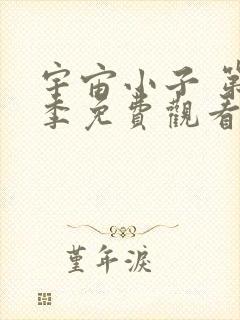 宇宙小子 第
季免費觀看
堇年淚